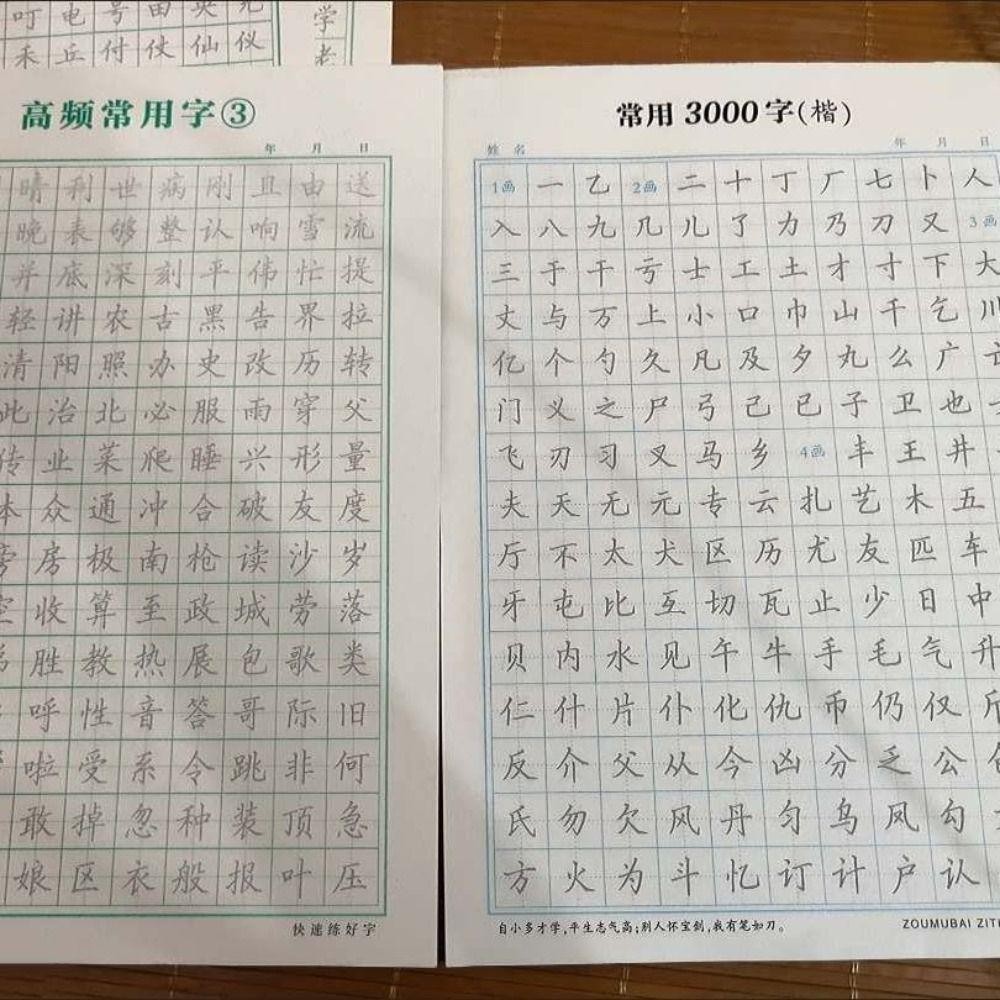 叮 电 号 由 央
禾 丘 付 仗 仙 仪
学
老
高频常用字③
年 月 日
晴 利 世 病 刚 且 由 送
晚 表 够 整 认 响 雪 流
并 底 深 刻 平 伟 忙 提
轻 讲 农 古 黑 告 界 拉
清 阳 照 办 史 改 历 转
此 治 北 必 服 雨 穿 父
传 业 菜 爬 睡 兴 形 量
本 众 通 冲 合 破 友 度
旁 房 极 南 枪 读 沙 岁
空 收 算 至 政 城 劳 落
胜 教 热 展 包 歌 类
呼 性 音 答 哥 际 旧
啦 受 系 令 跳 非 何
敢 掉 忽 种 装 顶 急
娘 区 衣 般 报 叶 压
快速练好字
常用3000字(楷)
姓 名 年 月 日
1画 一 乙 2画 二 十 丁 厂 七 卜 人
入 八 九 几 儿 了 力 乃 刀 又 3画
三 于 干 亏 士 工 土 才 寸 下 大
丈 与 万 上 小 口 巾 山 千 乞 川
亿 个 勺 久 凡 及 夕 丸 么 广
门 义 之 尸 弓 己 已 子 卫 也
飞 刃 习 叉 马 乡 4画 丰 王 井
夫 天 无 元 专 云 扎 艺 木 五
厅 不 太 犬 区 历 尤 友 匹 车
牙 屯 比 互 切 瓦 止 少 日 中
贝 内 水 见 午 牛 手 毛 气 升
仁 什 片 仆 化 仇 币 仍 仅 斤
反 介 父 从 今 凶 分 乏 公
氏 勿 欠 风 丹 匀 乌 凤 勾
方 火 为 斗 忆 订 计 户 认
自小多才学,平生志气高;别人怀宝剑,我有笔如刀。
ZOUMUBAI